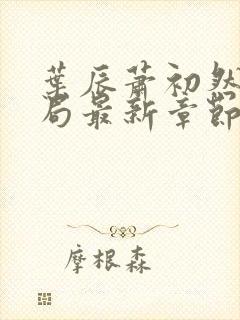 葉辰蕭初然
局最新章節
摩根森